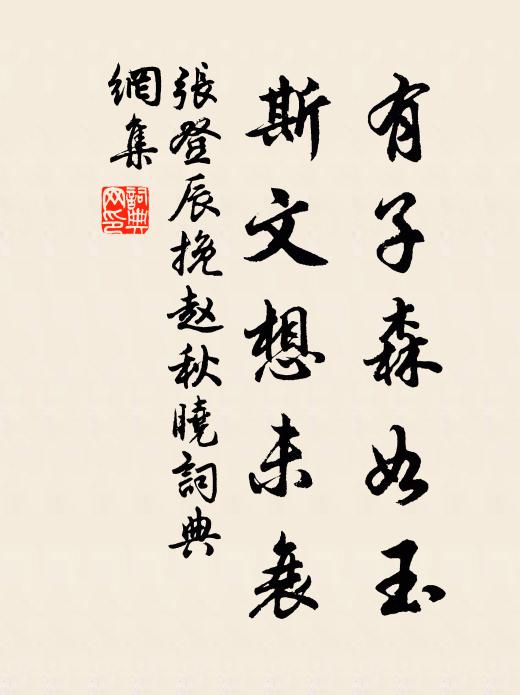 有子森如玉
斯文想未衰
張登辰挽赵秋曉詞典
網集
詞典
网印